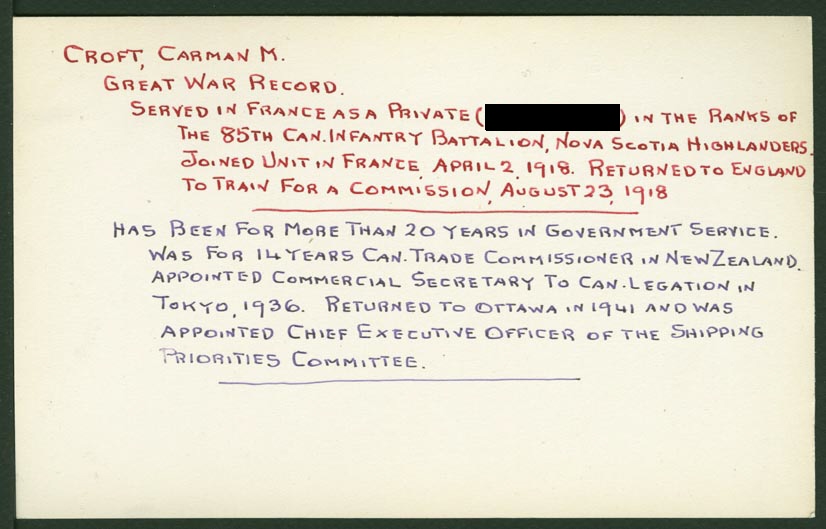 CROFT, CARMAN M.
GREAT WAR RECORD.
SERVED IN FRANCE AS A PRIVATE ( ) IN THE RANKS OF
THE 85TH CAN. INFANTRY BATTALION, NOVA SCOTIA HIGHLANDERS.
JOINED UNIT IN FRANCE, APRIL 2, 1918. RETURNED TO ENGLAND
TO TRAIN FOR A COMMISSION, AUGUST 23, 1918
HAS BEEN FOR MORE THAN 20 YEARS IN GOVERNMENT SERVICE.
WAS FOR 14 YEARS CAN. TRADE COMMISSIONER IN NEW ZEALAND.
APPOINTED COMMERCIAL SECRETARY TO CAN. LEGATION IN
TOKYO, 1936. RETURNED TO OTTAWA IN 1941 AND WAS
APPOINTED CHIEF EXECUTIVE OFFICER OF THE SHIPPING
PRIORITIES COMMITTEE.